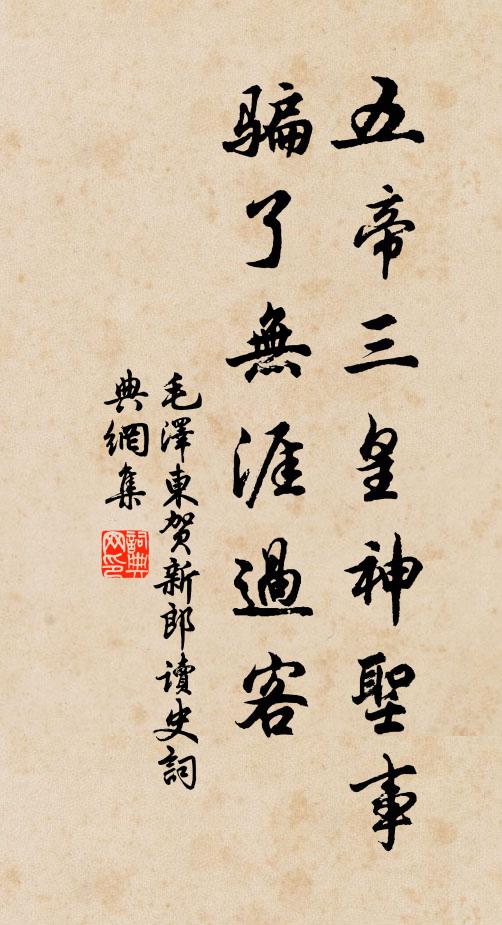 五帝三皇神聖事
騙了無涯過客
毛澤東贺新郎讀史詞
典網集
詞典网印